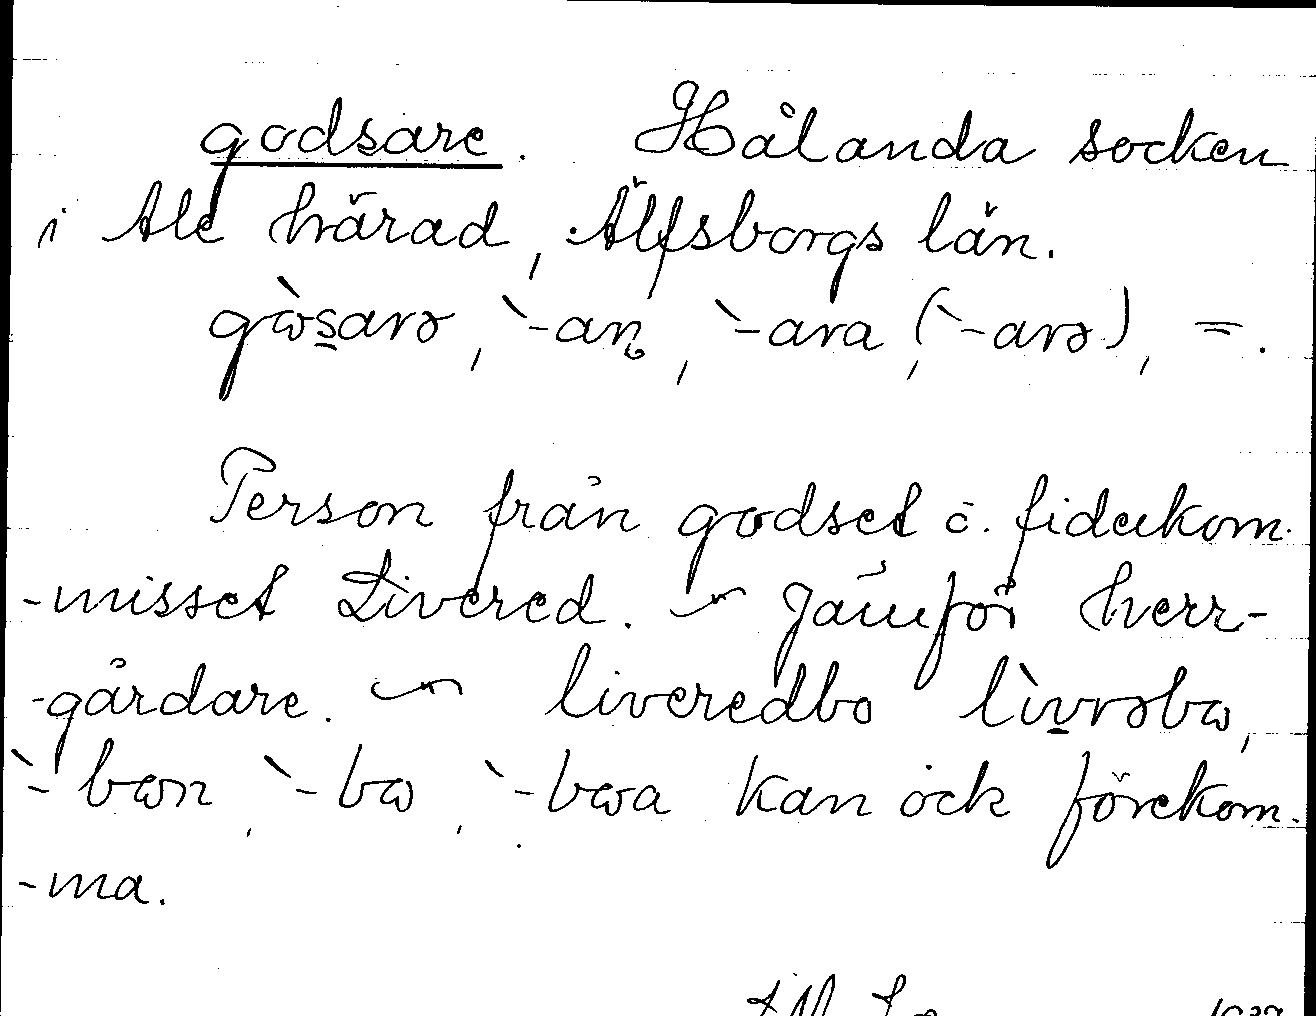 godsare. Hålanda socken
i Ale härad, Älfsborgs län.
gὼsarə, `-an̥, `-ara (`-arə), =.
Person från godset o. fideikom-
-misset Livered. ~ Jämför herr-
-gårdare. ~ liveredbo lìvrəbω,
`-bωn, `-bω, `-bωa kan ock förekom-
-ma.